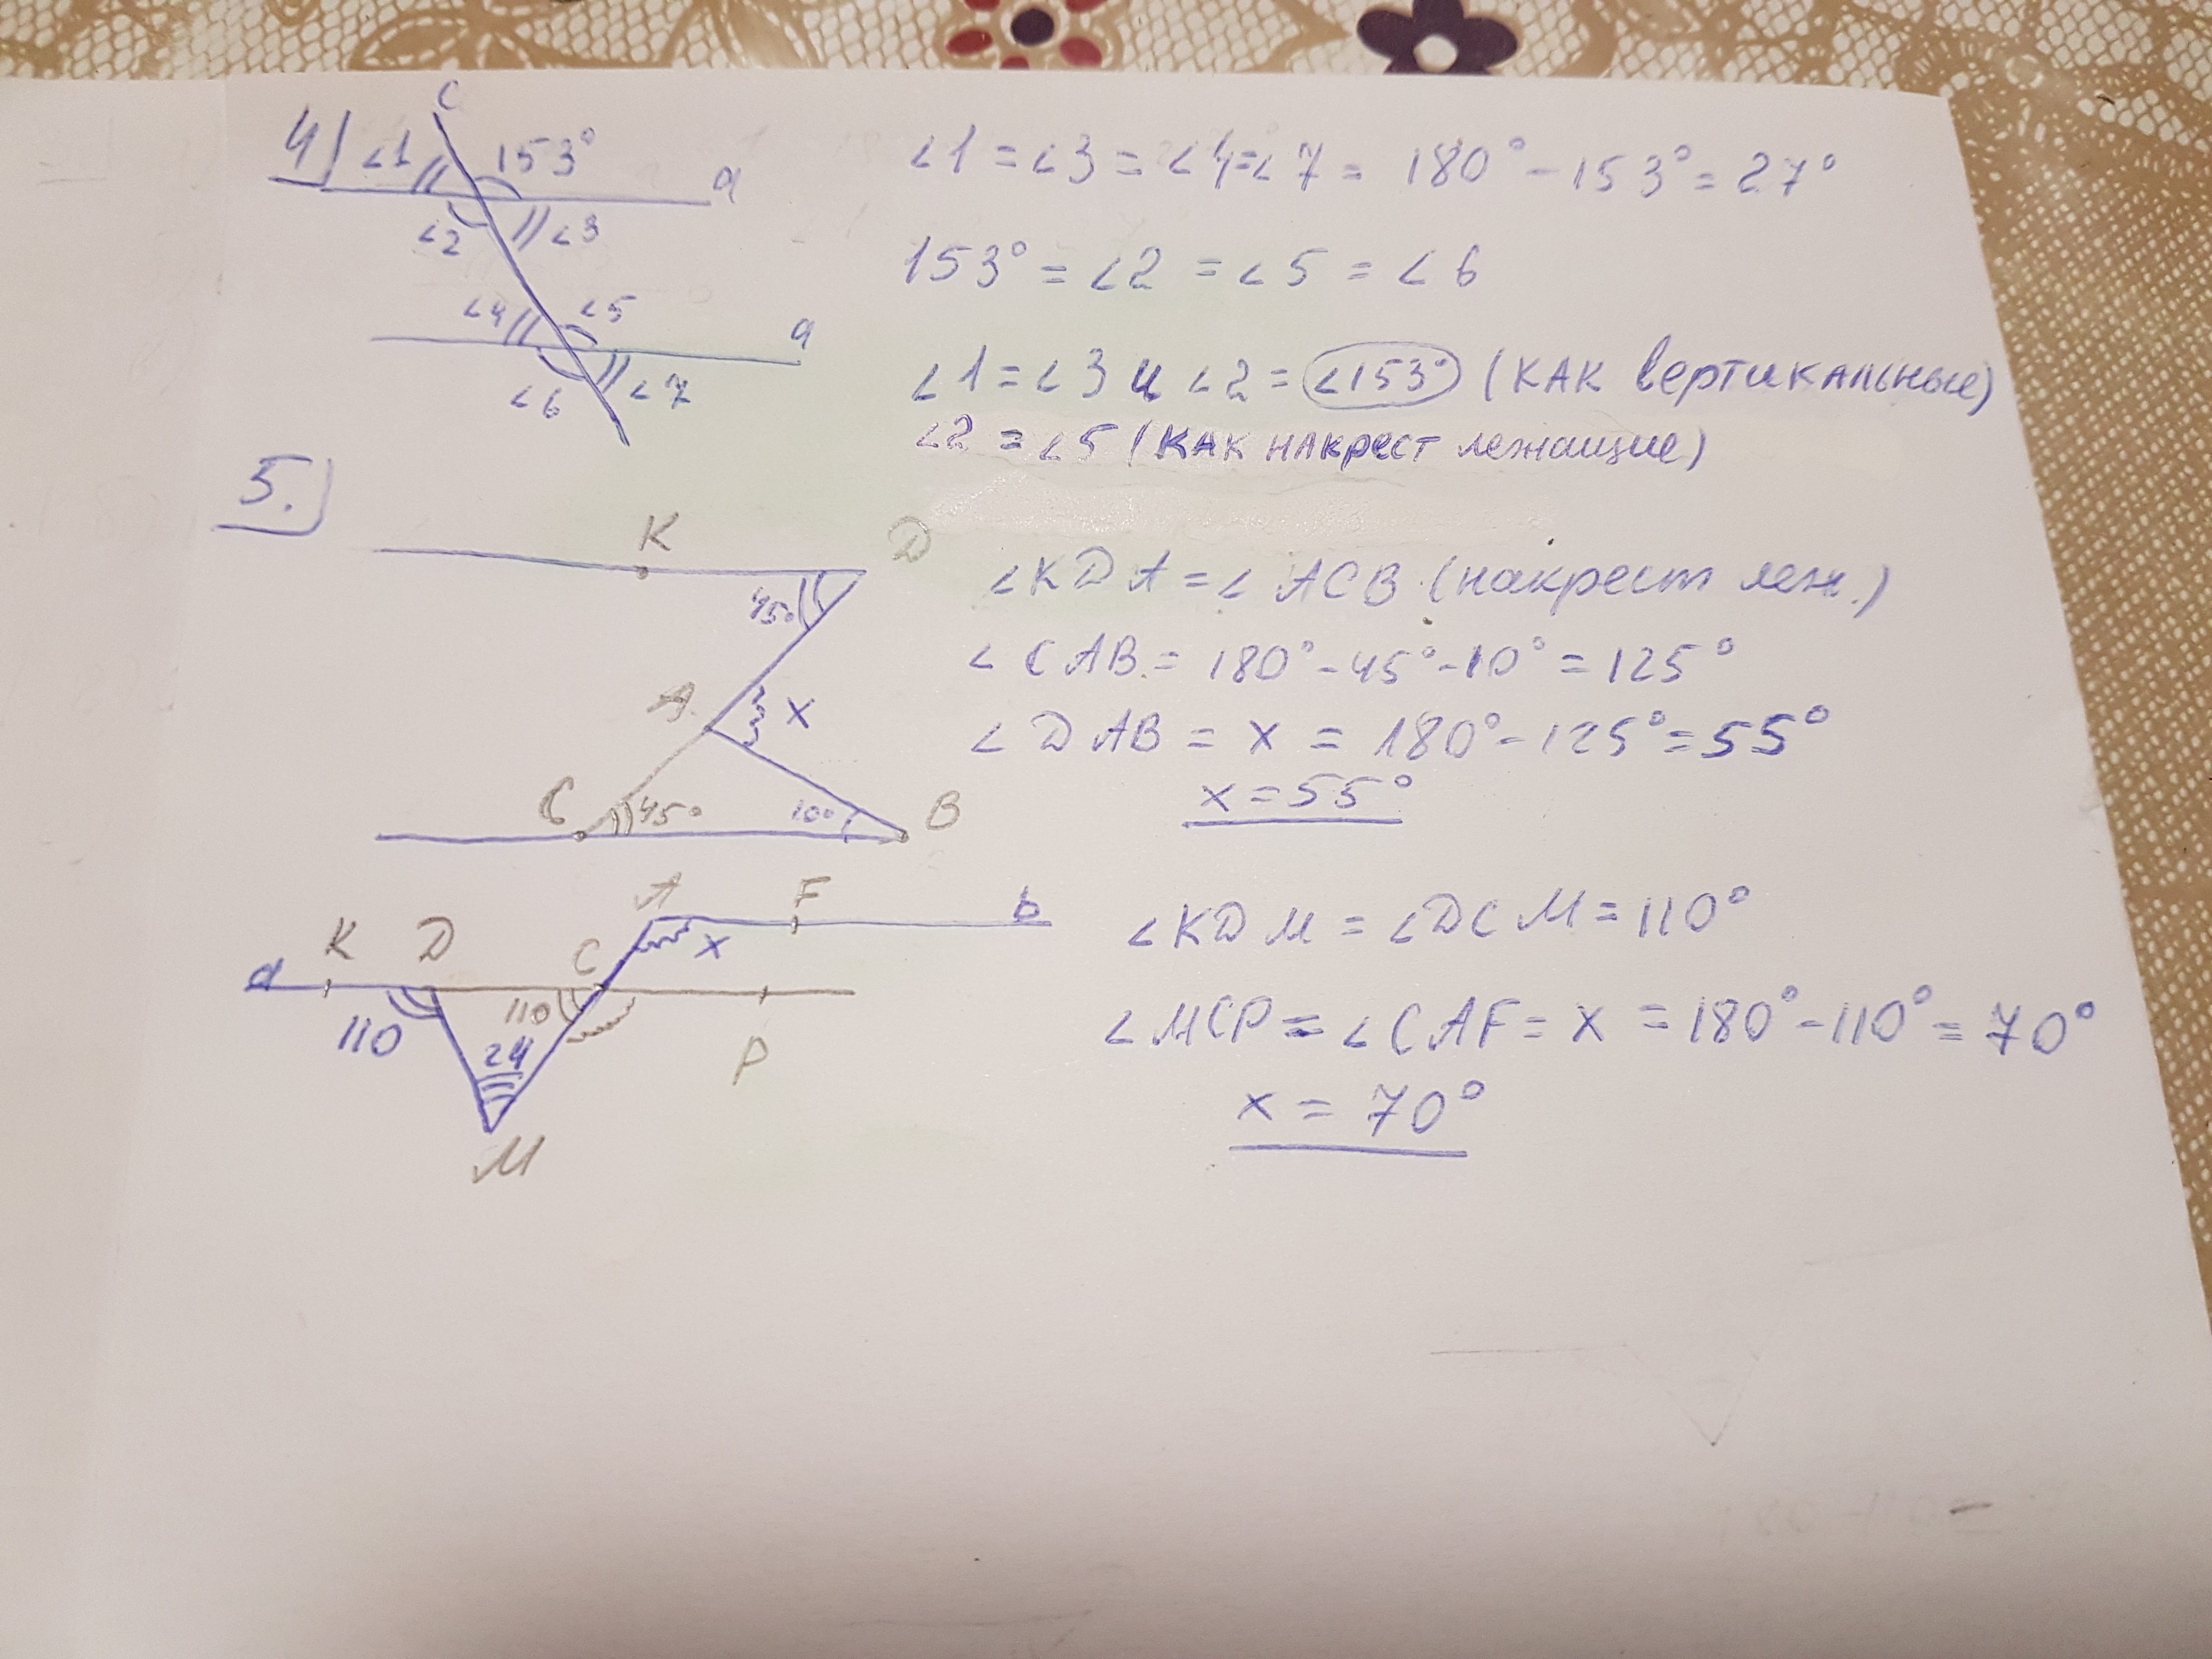 4)
C
∠1
153°
a
∠2
∠3
∠4
∠5
a
∠6
∠7
∠1 = ∠3 = ∠4 = ∠7 = 180° - 153° = 27°
153° = ∠2 = ∠5 = ∠6
∠1 = ∠3 и ∠2 = ∠153° (как вертикальные)
∠2 = ∠5 (как накрест лежащие)
5.
K
D
45°
A
x
C
45°
10°
B
∠KDA = ∠ACB (накрест леж.)
∠CAB = 180° - 45° - 10° = 125°
∠DAB = x = 180° - 125° = 55°
x = 55°
A
F
b
K
D
C
x
a
110
110
24
P
M
∠KDM = ∠DCM = 110°
∠MCP = ∠CAF = x = 180° - 110° = 70°
x = 70°